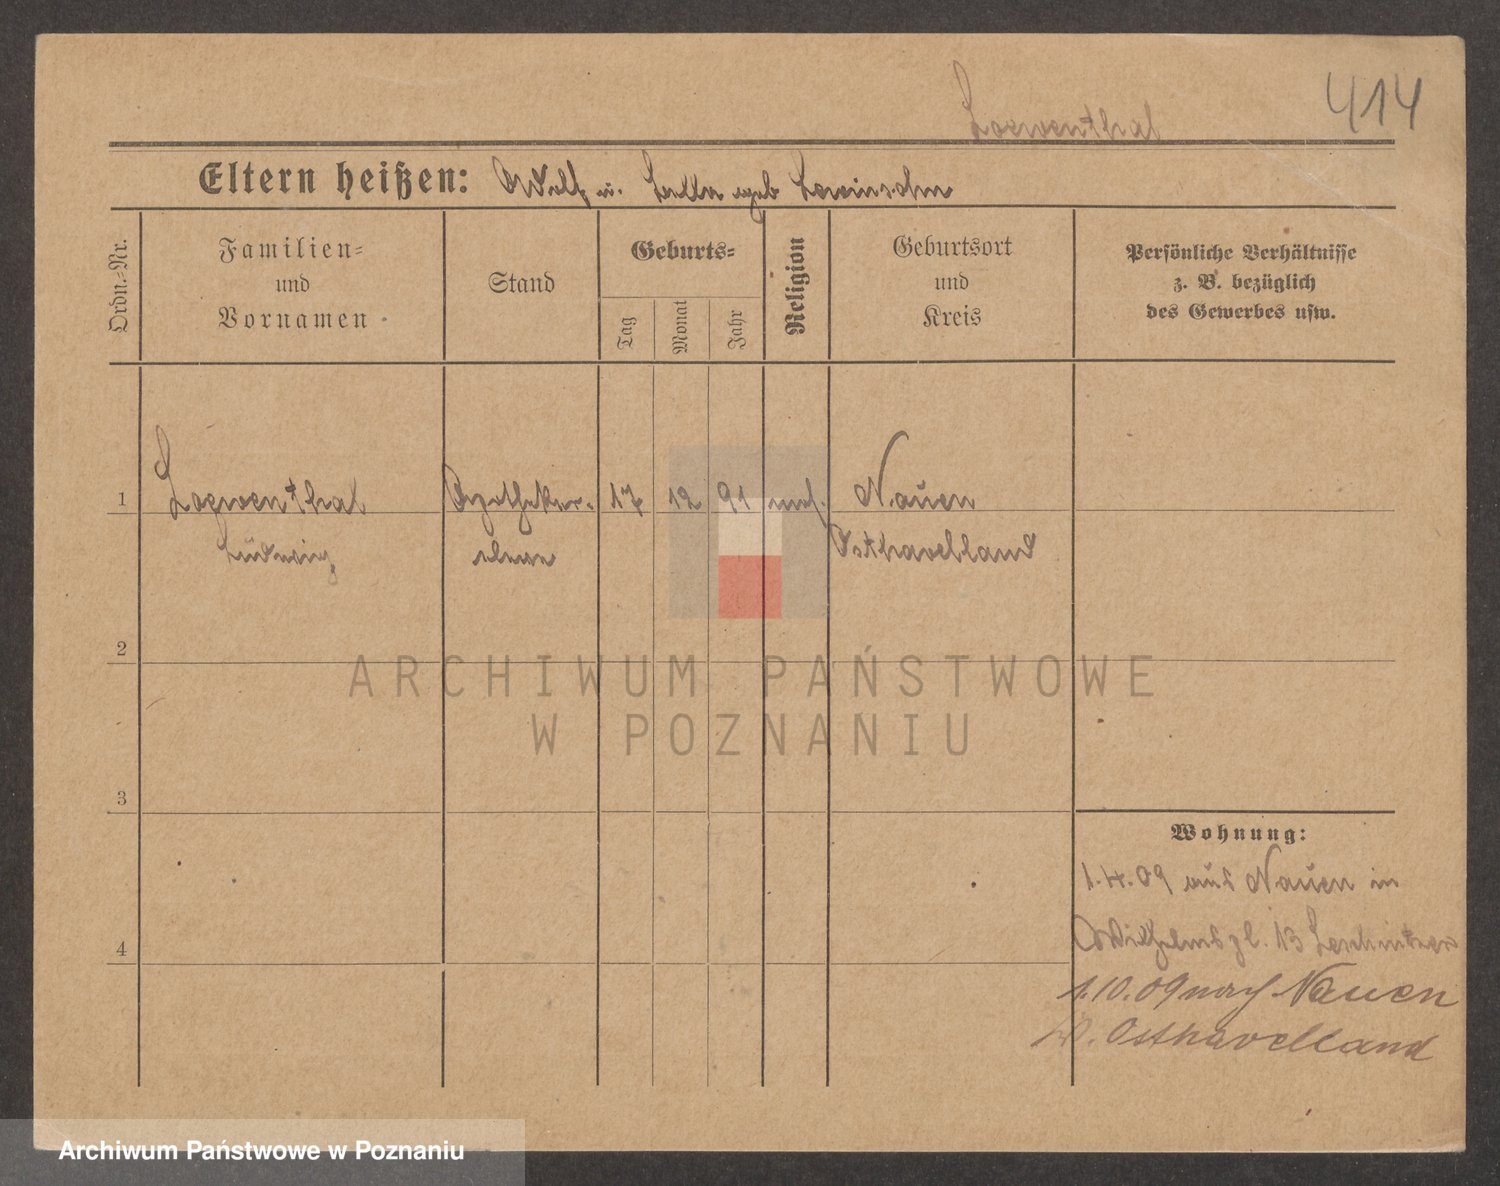 Loewenthal 414
Eltern heißen: Wolf u. geb Lewinsohn
Ordn.-Nr.
Familien-
und
Vornamen
Stand
Geburts-
Tag
Monat
Jahr
Religion
Geburtsort
und
Kreis
Persönliche Verhältnisse
z. B. bezüglich
des Gewerbes usw.
1 Loewenthal Apotheker- 17 12 91 mos. Nauen
Ludwig eleve Osthavelland
2
3
4
Wohnung:
1.4.09 aus Nauen in
Wilhelmspl. 13
1.10.09 nach Nauen
Osthavelland
ARCHIWUM PAŃSTWOWE
W POZNANIU
Archiwum Państwowe w Poznaniu